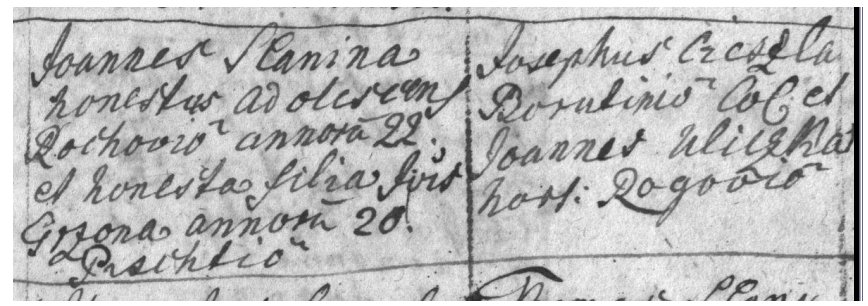 Joannes Slanina
honestus adolescens
Rochovio annorū 22.
et honesta filia Jōis
annorū 20.
Josephus Ciesla
Borutinio Col. et
Joannes Uliczka
hort: Rogovio